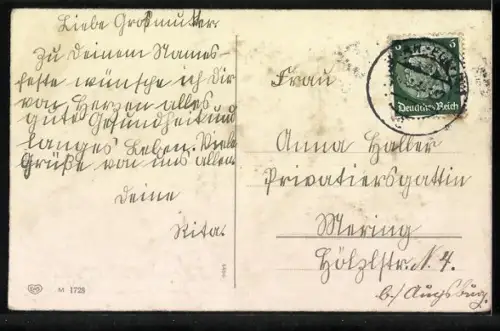 Liebe Großmutter.
Zu Deinem Namens-
feste wünsche ich dir
von Herzen alles
gute Gesundheit und
langes Leben. Viele
Grüße von uns allen.
Deine
Rita.
M 1728
6 6
Deutsches Reich
Frau
Anna Haller
Privatiersgattin
Mering
Hölzlstr. N. 4.
b/ Augsburg.